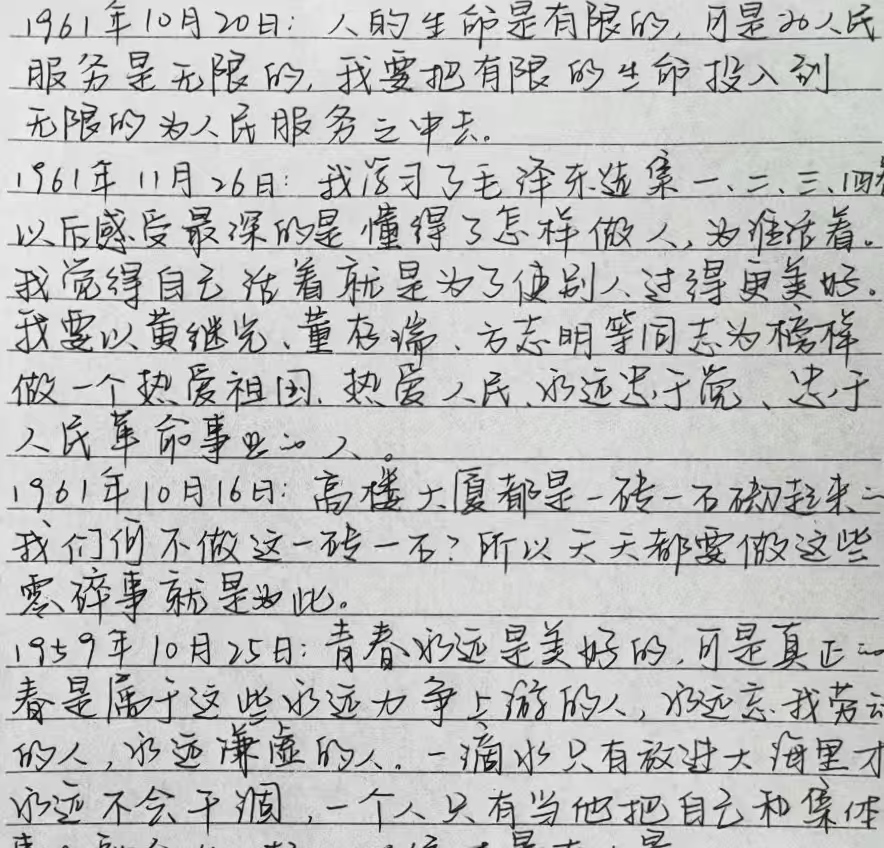 1961年10月20日：人的生命是有限的，可是为人民
服务是无限的，我要把有限的生命投入到
无限的为人民服务之中去。
1961年11月26日：我学习了毛泽东选集一、二、三、四卷
以后感受最深的是懂得了怎样做人，为谁活着。
我觉得自己活着就是为了使别人过得更美好。
我要以黄继光、董存瑞、方志明等同志为榜样
做一个热爱祖国、热爱人民、永远忠于党、忠于
人民革命事业的人。
1961年10月16日：高楼大厦都是一砖一石砌起来的
我们何不做这一砖一石？所以天天都要做这些
零碎事就是为此。
1959年10月25日：青春永远是美好的，可是真正的
春是属于这些永远力争上游的人，永远忘我劳动
的人，永远谦虚的人。一滴水只有放进大海里才
永远不会干涸，一个人只有当他把自己和集体